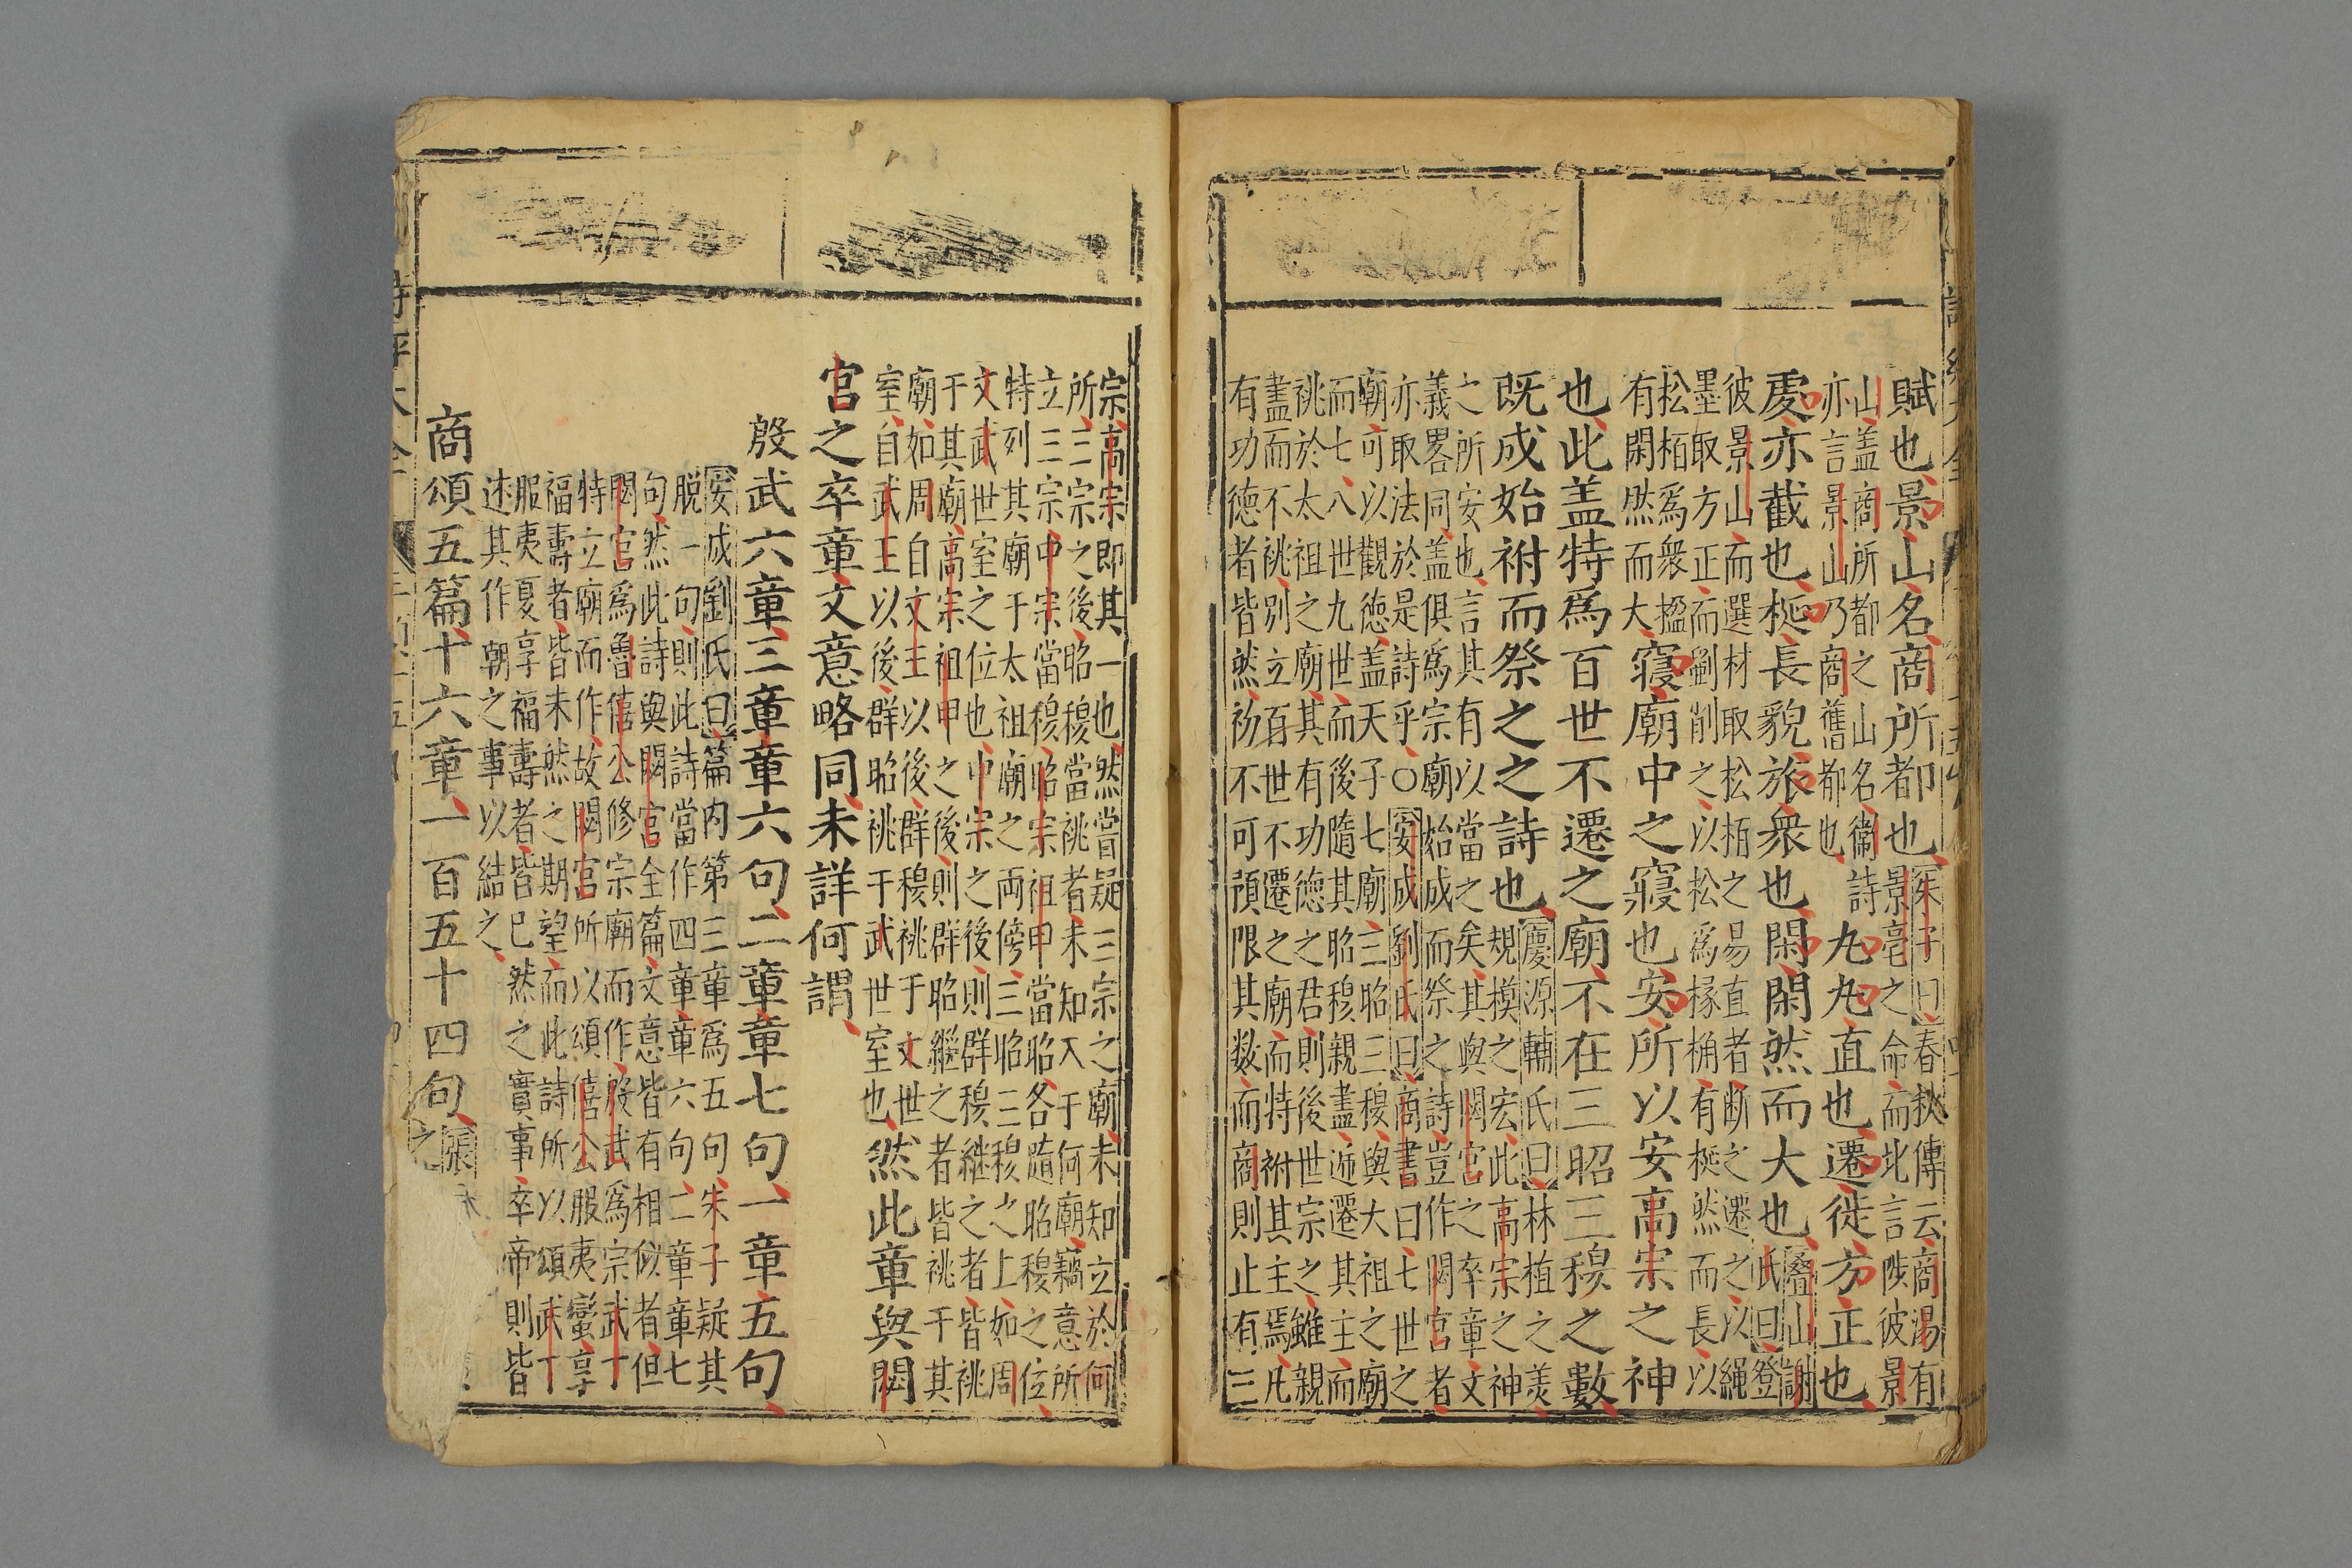 賦也景山名商所都也
朱子曰春秋傳云商湯有
景亳之命而此言陟彼景
山盖商所都之山名衛詩
亦言景山乃商舊都也
丸丸直也遷徙方正也
處亦截也梴長貌旅衆也閑閑然而大也
疊山謝
氏曰登
彼景山而選材取松栢之易直者断之遷之以繩
墨取方正而斵削之以松爲椽桷有梴然而長以
松栢爲衆楹
有閑然而大
寢廟中之寢也安所以安高宗之神
也此盖特爲百世不遷之廟不在三昭三穆之數
既成始祔而祭之之詩也
慶源輔氏曰林植之羙
規模之宏此高宗之神
之所安也言其有以當之矣其與閟宫之卒章文
義畧同盖俱爲宗廟始成而祭之詩豈作閟宫者
亦取法於是詩乎○安成劉氏曰商書曰七世之
廟可以觀徳盖天子七廟三昭三穆與大祖之廟
而七八世九世而後隨其昭穆親盡逓遷其主而
祧於太祖之廟其有功徳之君則後世宗之雖親
盡而不祧別立百世不遷之廟而特祔其主焉凡
有功德者皆然初不可預限其数而商則止有三
宗高宗即其一也然嘗疑三宗之廟未知立於何
所三宗之後昭穆當祧者未知入于何廟竊意所
立三宗中宗當穆昭宗祖甲當昭各隨昭穆之位
特列其廟于太祖廟之兩傍三昭三穆之上如周
文武世室之位也中宗之後則群穆継之者皆祧
于其廟高宗祖甲之後則群昭繼之者皆祧于其
廟如周自文王以後群穆祧于文世
室自武王以後群昭祧于武世室也
然此章與閟
宫之卒章文意略同未詳何謂
殷武六章三章章六句二章章七句一章五句
安成劉氏曰篇内第三章爲五句朱子疑其
脱一句則此詩當作四章章六句二章章七
句然此詩與閟宫全篇文意皆有相似者但
閟宫爲魯僖公修宗廟而作殷武爲宗武丁
特立廟而作故閟宫所以頌僖公服夷蠻享
福壽者皆未然之期望而此詩所以頌武丁
服夷夏享福壽者皆已然之實事卒帝則皆
述其作朝之事以結之
商頌五篇十六章一百五十四句
張
之